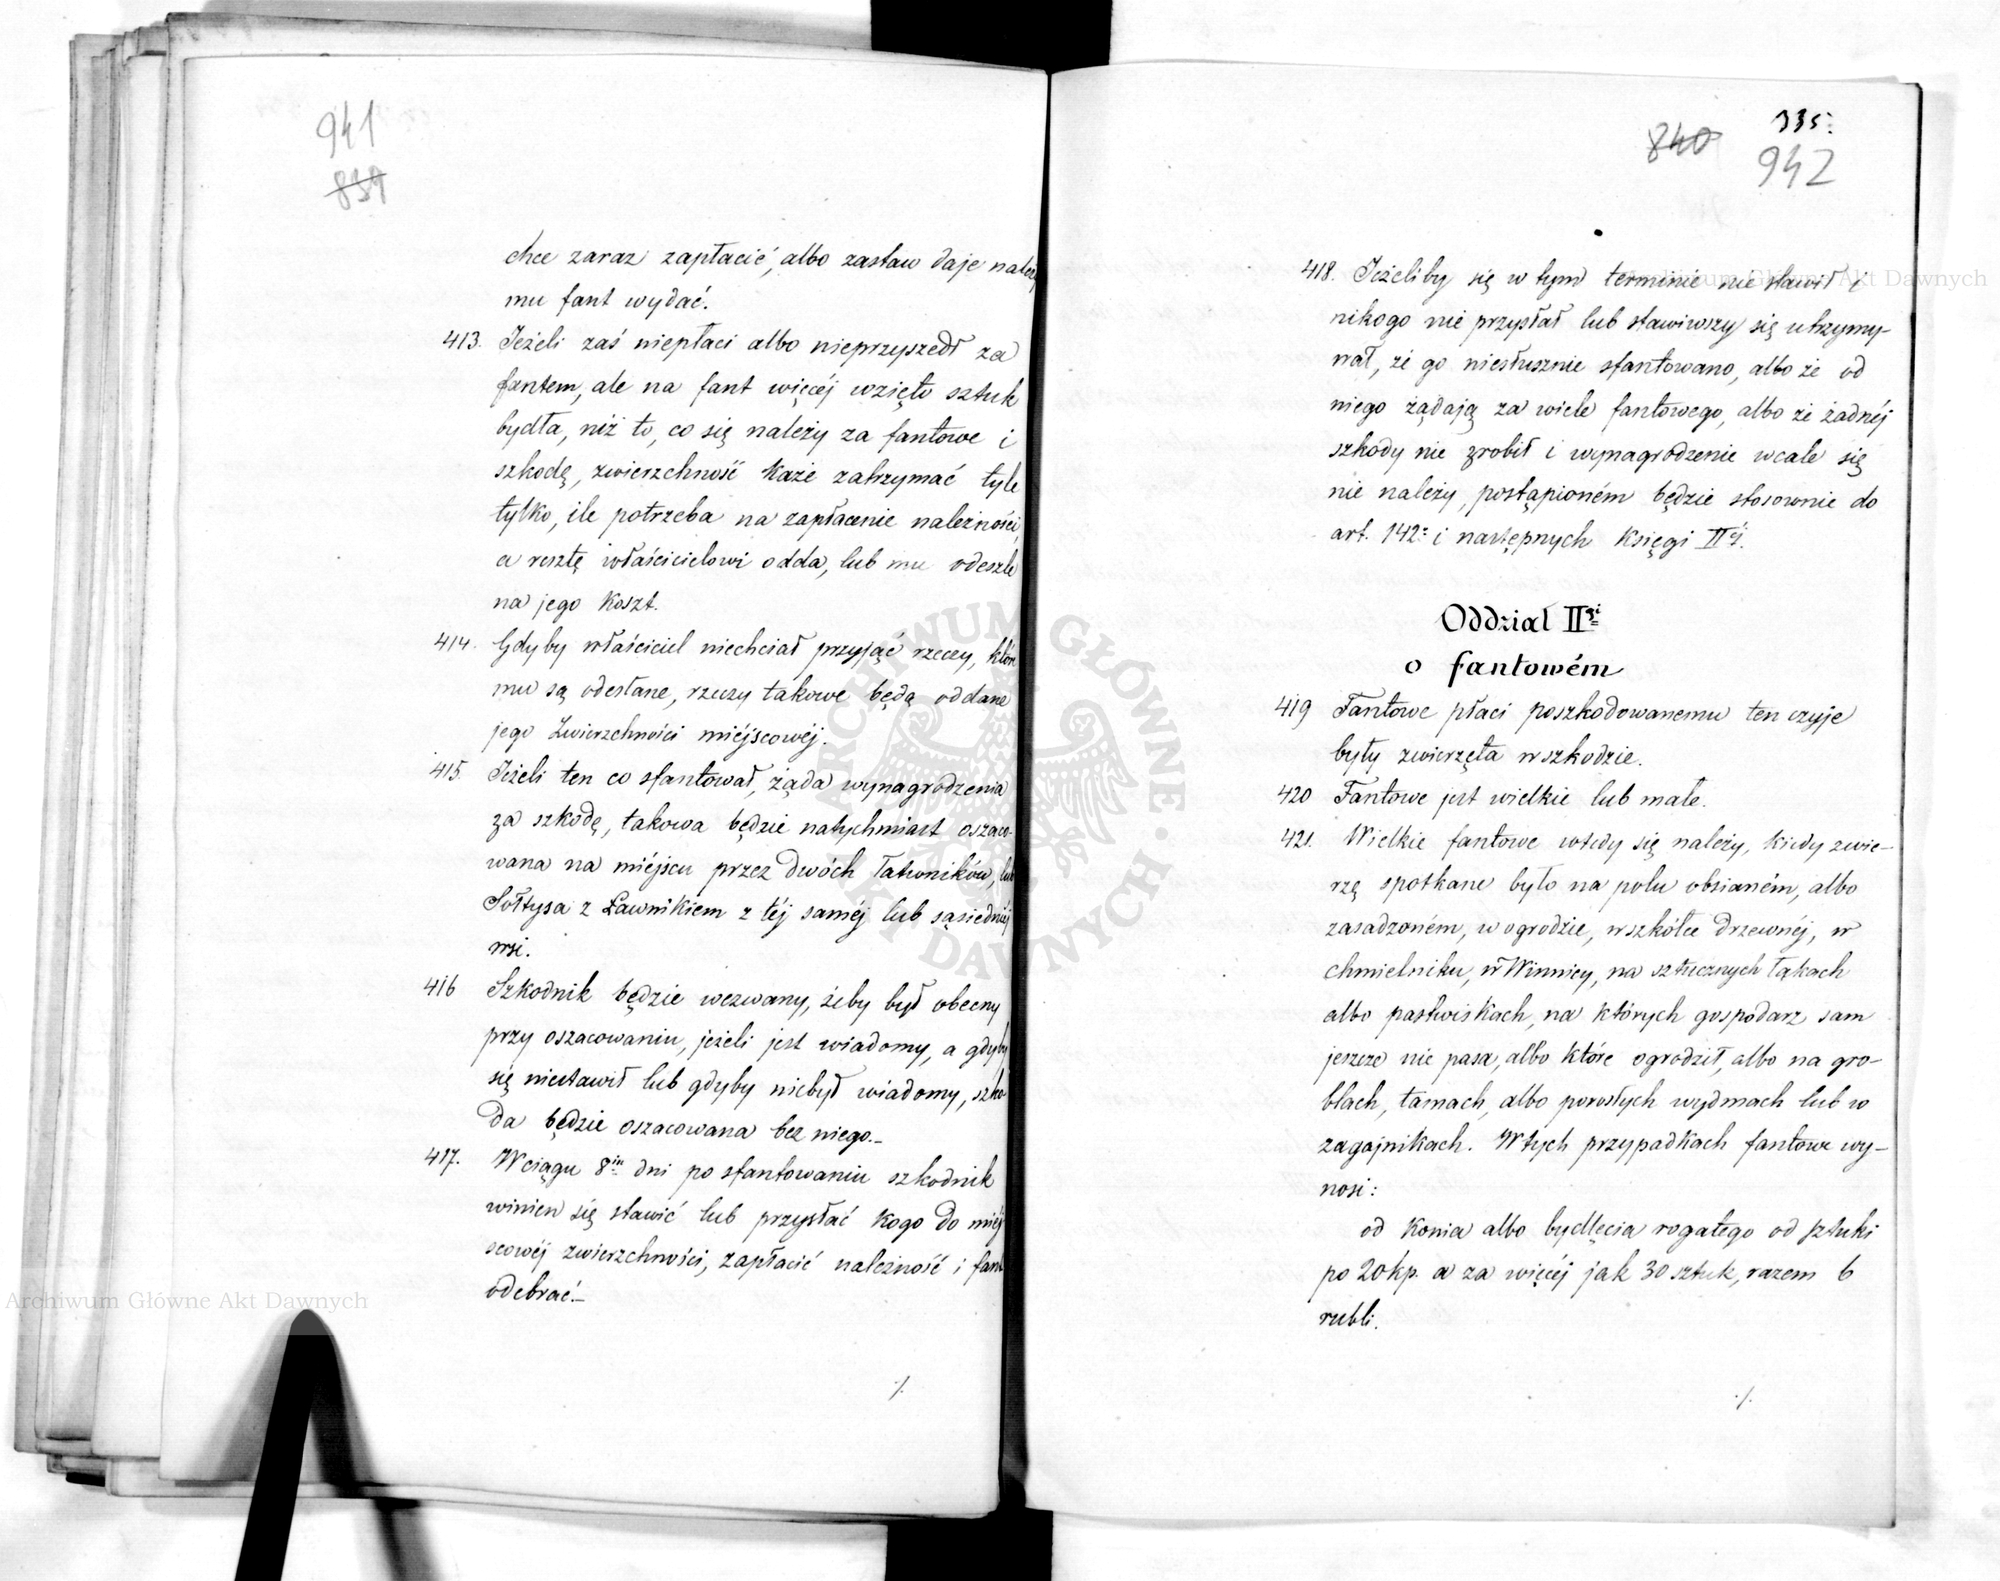 941
839
chce zaraz zapłacić, albo zastaw daje należy
mu fant wydać.
413. Jeżeli zaś niepłaci albo nieprzyszedł za
fantem, ale na fant więcéj wzięto sztuk
bydła, niż to, co się należy za fantowe i
szkodę, zwierzchność każe zatrzymać tyle
tylko, ile potrzeba na zapłacenie należności,
a resztę właścicielowi odda, lub mu odeszle
na jego koszt.
414. Gdyby właściciel niechciał przyjąć rzeczy, które
mu są odesłane, rzeczy takowe będą oddane
jego Zwierzchności miéjscowéj.
415. Jeżeli ten co sfantował, żąda wynagrodzenia
za szkodę, takowa będzie natychmiast oszaco-
wana na miéjscu przez dwóch Taksowników, lub
Sołtysa z Ławnikiem z téj saméj lub sąsiedniéj
wsi.
416 Szkodnik będzie wezwany, żeby był obecny
przy oszacowaniu, jeżeli jest wiadomy, a gdyby
się niestawił lub gdyby niebył wiadomy, szko-
da będzie oszacowana bez niego._
417. W ciągu 8iu dni po sfantowaniu szkodnik
winien się stawić lub przysłać kogo do miéj
scowéj zwierzchności, zapłacić należność i fant
odebrać._
·/.
840 335.
942
418. Jeżeliby się w tym terminie nie stawił i
nikogo nie przysłał lub stawiwszy się utrzymy-
wał, że go niesłusznie sfantowano, albo że od
niego żądają za wiele fantowego, albo że żadnéj
szkody nie zrobił i wynagrodzenie wcale się
nie należy, postąpioném będzie stosownie do
art. 142. i następnych Księgi IIéj.
Oddział IIgi
o fantowém
419 Fantowe płaci poszkodowanemu ten czyje
były zwierzęta w szkodzie.
420 Fantowe jest wielkie lub małe.
421. Wielkie fantowe wtedy się należy, kiedy zwie-
rzę spotkane było na polu obsianém, albo
zasadzoném, w ogrodzie, w szkółce drzewnéj, w
chmielniku, w Winnicy, na sztucznych łąkach
albo pastwiskach, na których gospodarz sam
jeszcze nie pasa, albo które ogrodził, albo na gro-
blach, tamach, albo porosłych wydmach lub w
zagajnikach. W tych przypadkach fantowe wy-
nosi:
od konia albo bydlęcia rogatego od sztuki
po 20 kp. a za więcéj jak 30 sztuk, razem 6
rubli.
·/.
ARCHIWUM GŁÓWNE · AKT DAWNYCH ·
Archiwum Główne Akt Dawnych
Archiwum Główne Akt Dawnych